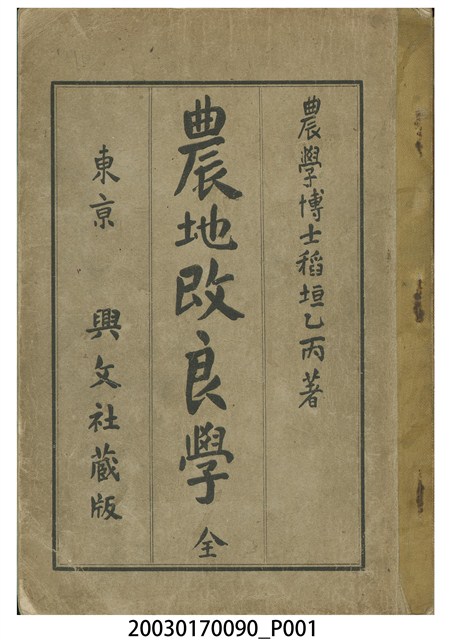 農學博士稻垣乙丙著
農地改良學 全
東京 興文社蔵版
20030170090_P001